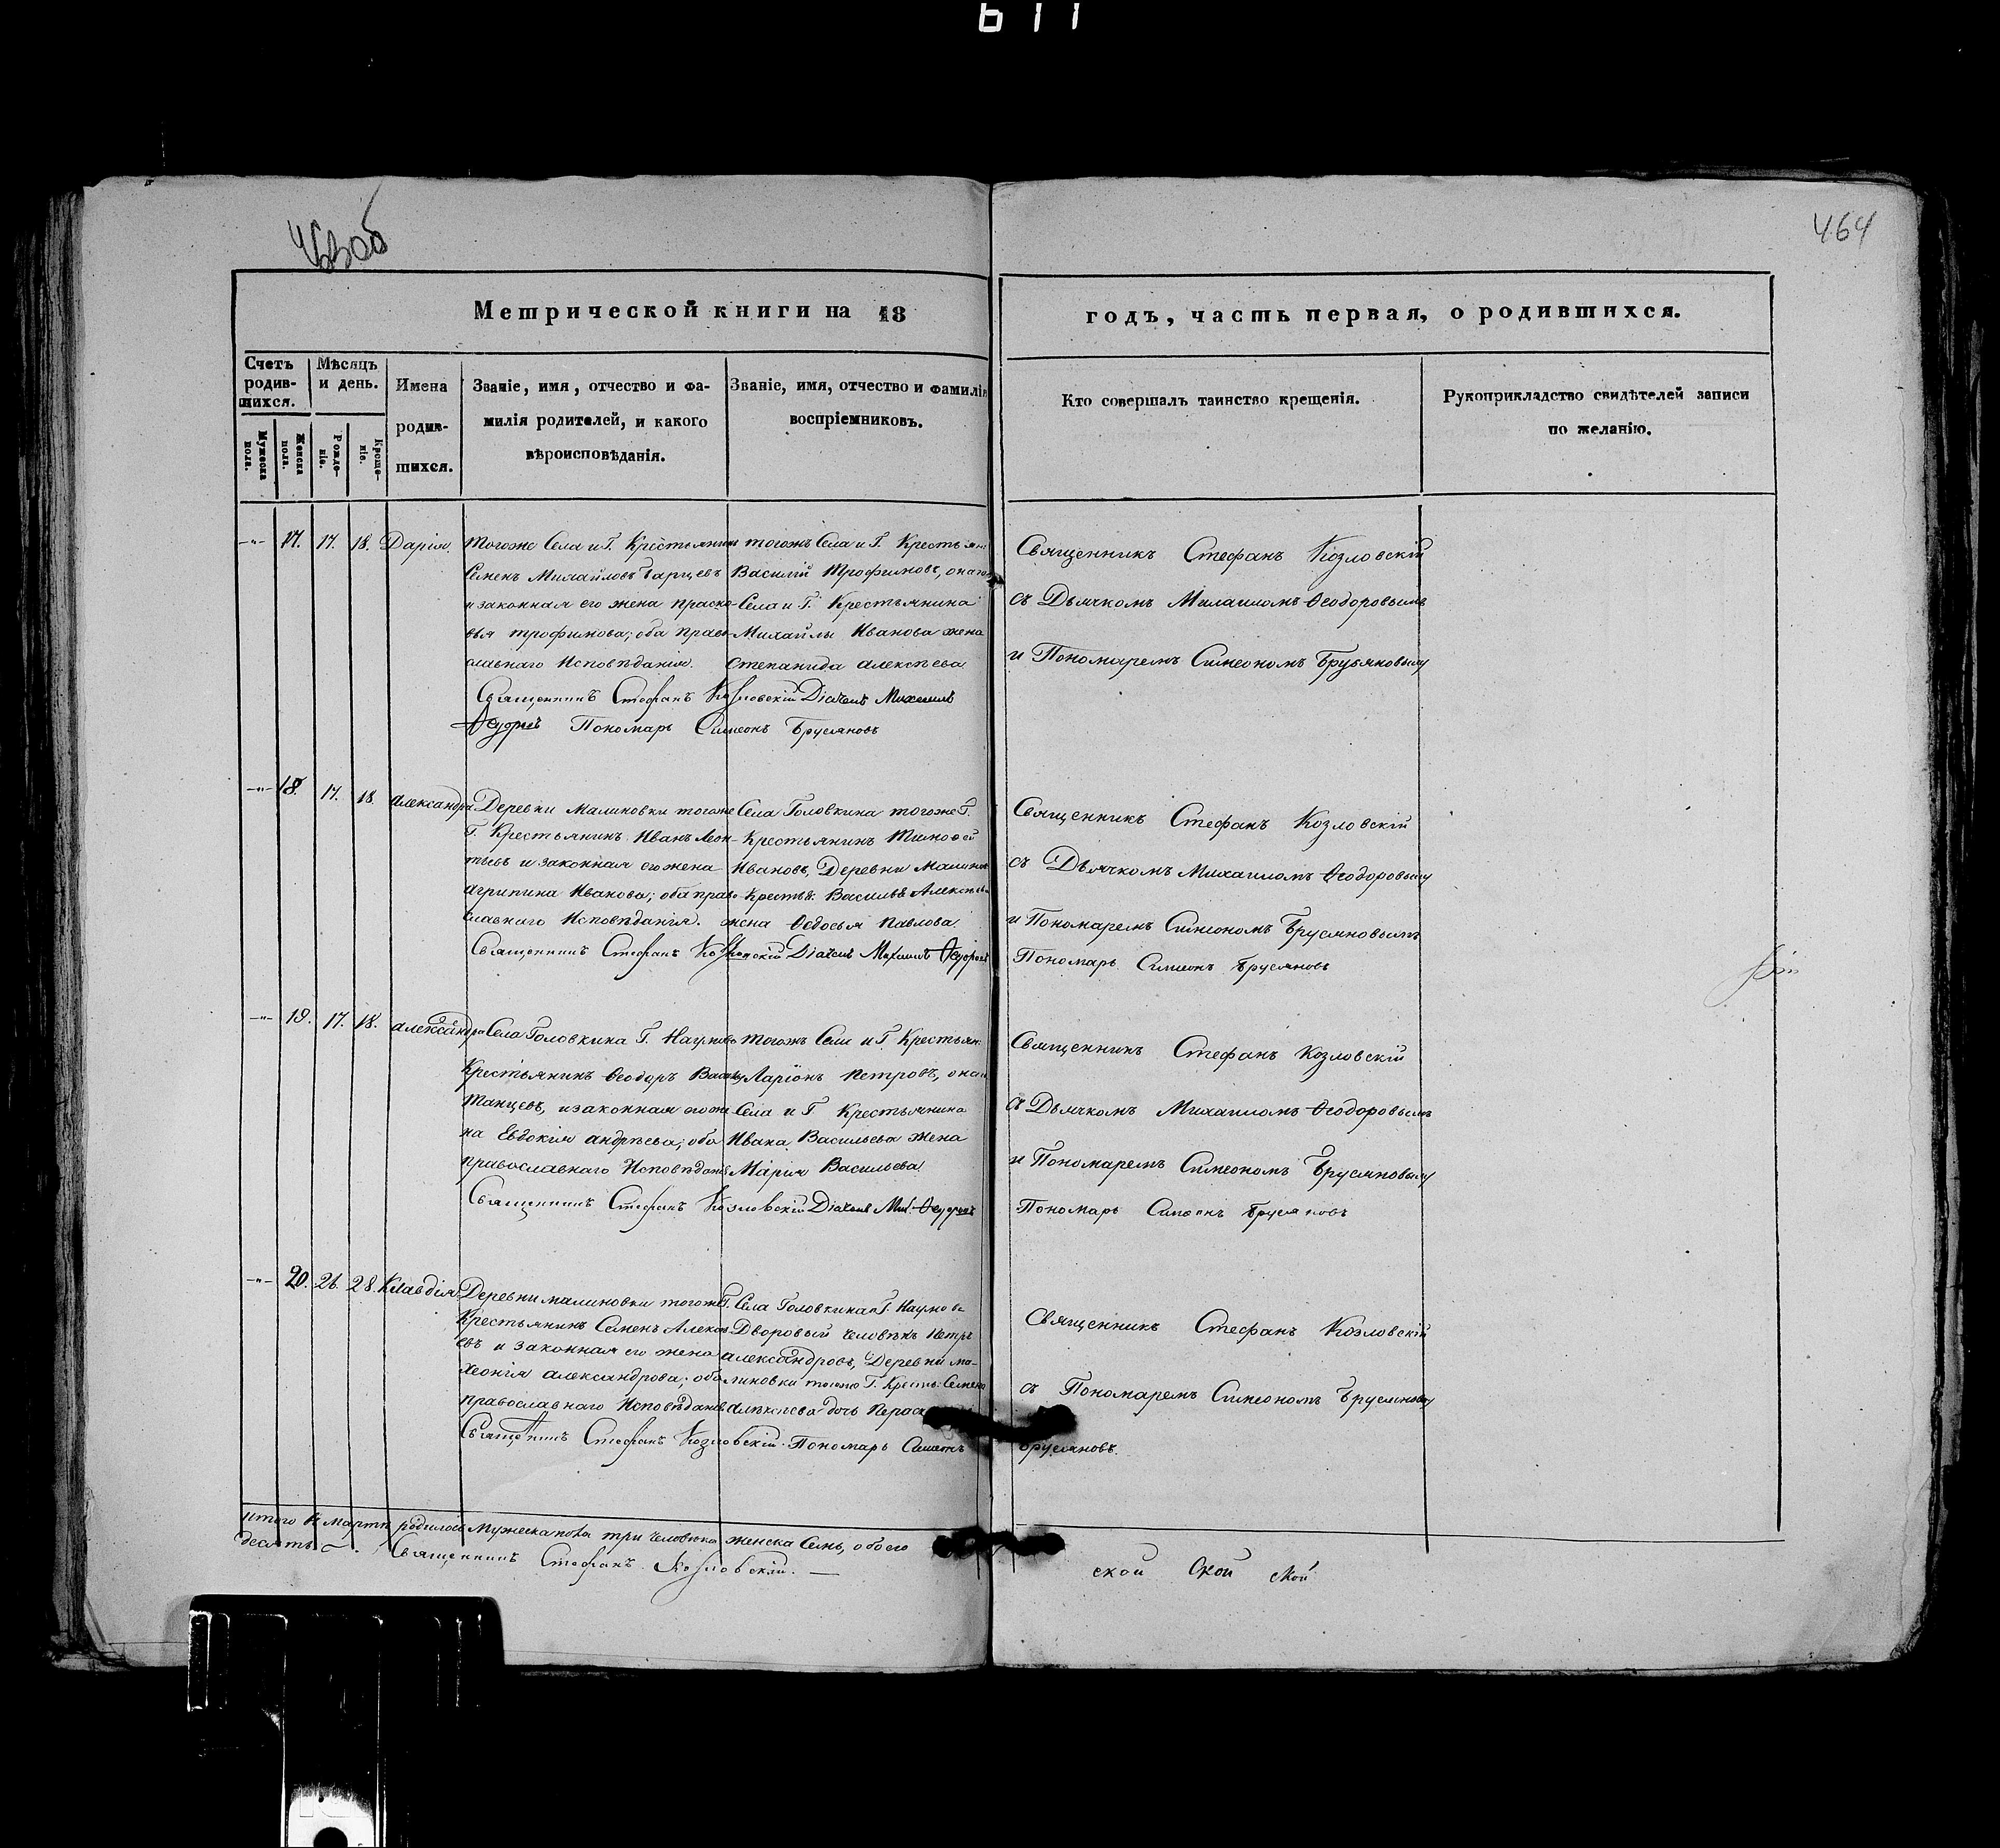 611
463об
464
Метрической книги на 18
годъ, часть первая, о родившихся.
Счетъ родив-шихся.
Мѣсяцъ и день.
Имена родив-шихся.
Званіе, имя, отчество и фа-
милія родителей, и какого
вѣроисповѣданія.
Званіе, имя, отчество и фамилія
воспріемниковъ.
Кто совершалъ таинство крещенія.
Рукоприкладство свидѣтелей записи
по желанію.
Мужеска пола.
Женска пола.
Рожде-ніе.
Креще-ніе.
17. 17. 18. Дарія.
Тогоже Села и Г. Крестьянин
Семенъ Михайловъ
и законная его жена Праско-
вья Трофимова; оба право-
славнаго Исповѣданія.
тогожъ Села и Г. Крестьян
Василій Трофимовъ, онаго
Села и Г. Крестьянина
Михайлы Иванова жена
Степанида Алексѣева
Священникъ Стефанъ Козловскій Діаконъ Михаилъ
Пономарь Симеонъ Брусяновъ
Священникъ Стефанъ Козловскій
съ Дьячкомъ Михаиломъ Ѳеодоровымъ
и Пономаремъ Симеономъ Брусяновым
18. 17. 18. Александра
Деревни Малиновки тогоже
Г. Крестьянинъ Иванъ Леон-
тьевъ и законная его жена
Агрипина Иванова; оба право-
славнаго Исповѣданія.
Села Головкина тогоже Г.
Крестьянинъ Тимофей
Ивановъ, Деревни Малинов
Крестьян: Василья Алексѣева
жена Ѳедосья Павлова
Священникъ Стефанъ Козловскій Діаконъ Михаилъ
Священникъ Стефанъ Козловскій
съ Дьячкомъ Михаиломъ Ѳеодоровым
и Пономаремъ Симеономъ Брусяновымъ
Пономарь Симеонъ Брусяновъ
19. 17. 18. Александра
Села Головкина Г. Наумова
Крестьянинъ Ѳеодоръ Василь
Танцевъ, и законная его же
на Евдокія Андрѣева; оба
православнаго Исповѣдан
тогожъ Села и Г. Крестьян:
Ларіонъ Петровъ, онаго
Села и Г Крестьянина
Ивана Васильева жена
Марія Васильева
Священникъ Стефанъ Козловскій Діаконъ Мих.
Священникъ Стефанъ Козловскій
съ Дьячкомъ Михаиломъ Ѳеодоровымъ
и Пономаремъ Симеономъ Брусяновым
Пономарь Симеонъ Брусяновъ
20. 26. 28. Клавдія
Деревни Малиновки тогоже
Крестьянинъ Семенъ Алексѣ
евъ и законная его жена
Хеонія Александрова; оба
православнаго Исповѣданія
Г. Села Головкина Г. Наумова
Дворовый Человѣкъ Петръ
Александровъ, Деревни Ма-
линовки тогоже Г. Кресть: Семена
Алексѣева дочь
Священникъ Стефанъ Козловскій. Пономарь Симеонъ
Брусяновъ.
Священникъ Стефанъ Козловскій
съ Пономаремъ Симеономъ Брусяновым
Итого въ Мартѣ родилось Мужеска пола три человѣка женска Семь, обоего
десять. Священникъ Стефанъ Козловскій.
ской Ской ской